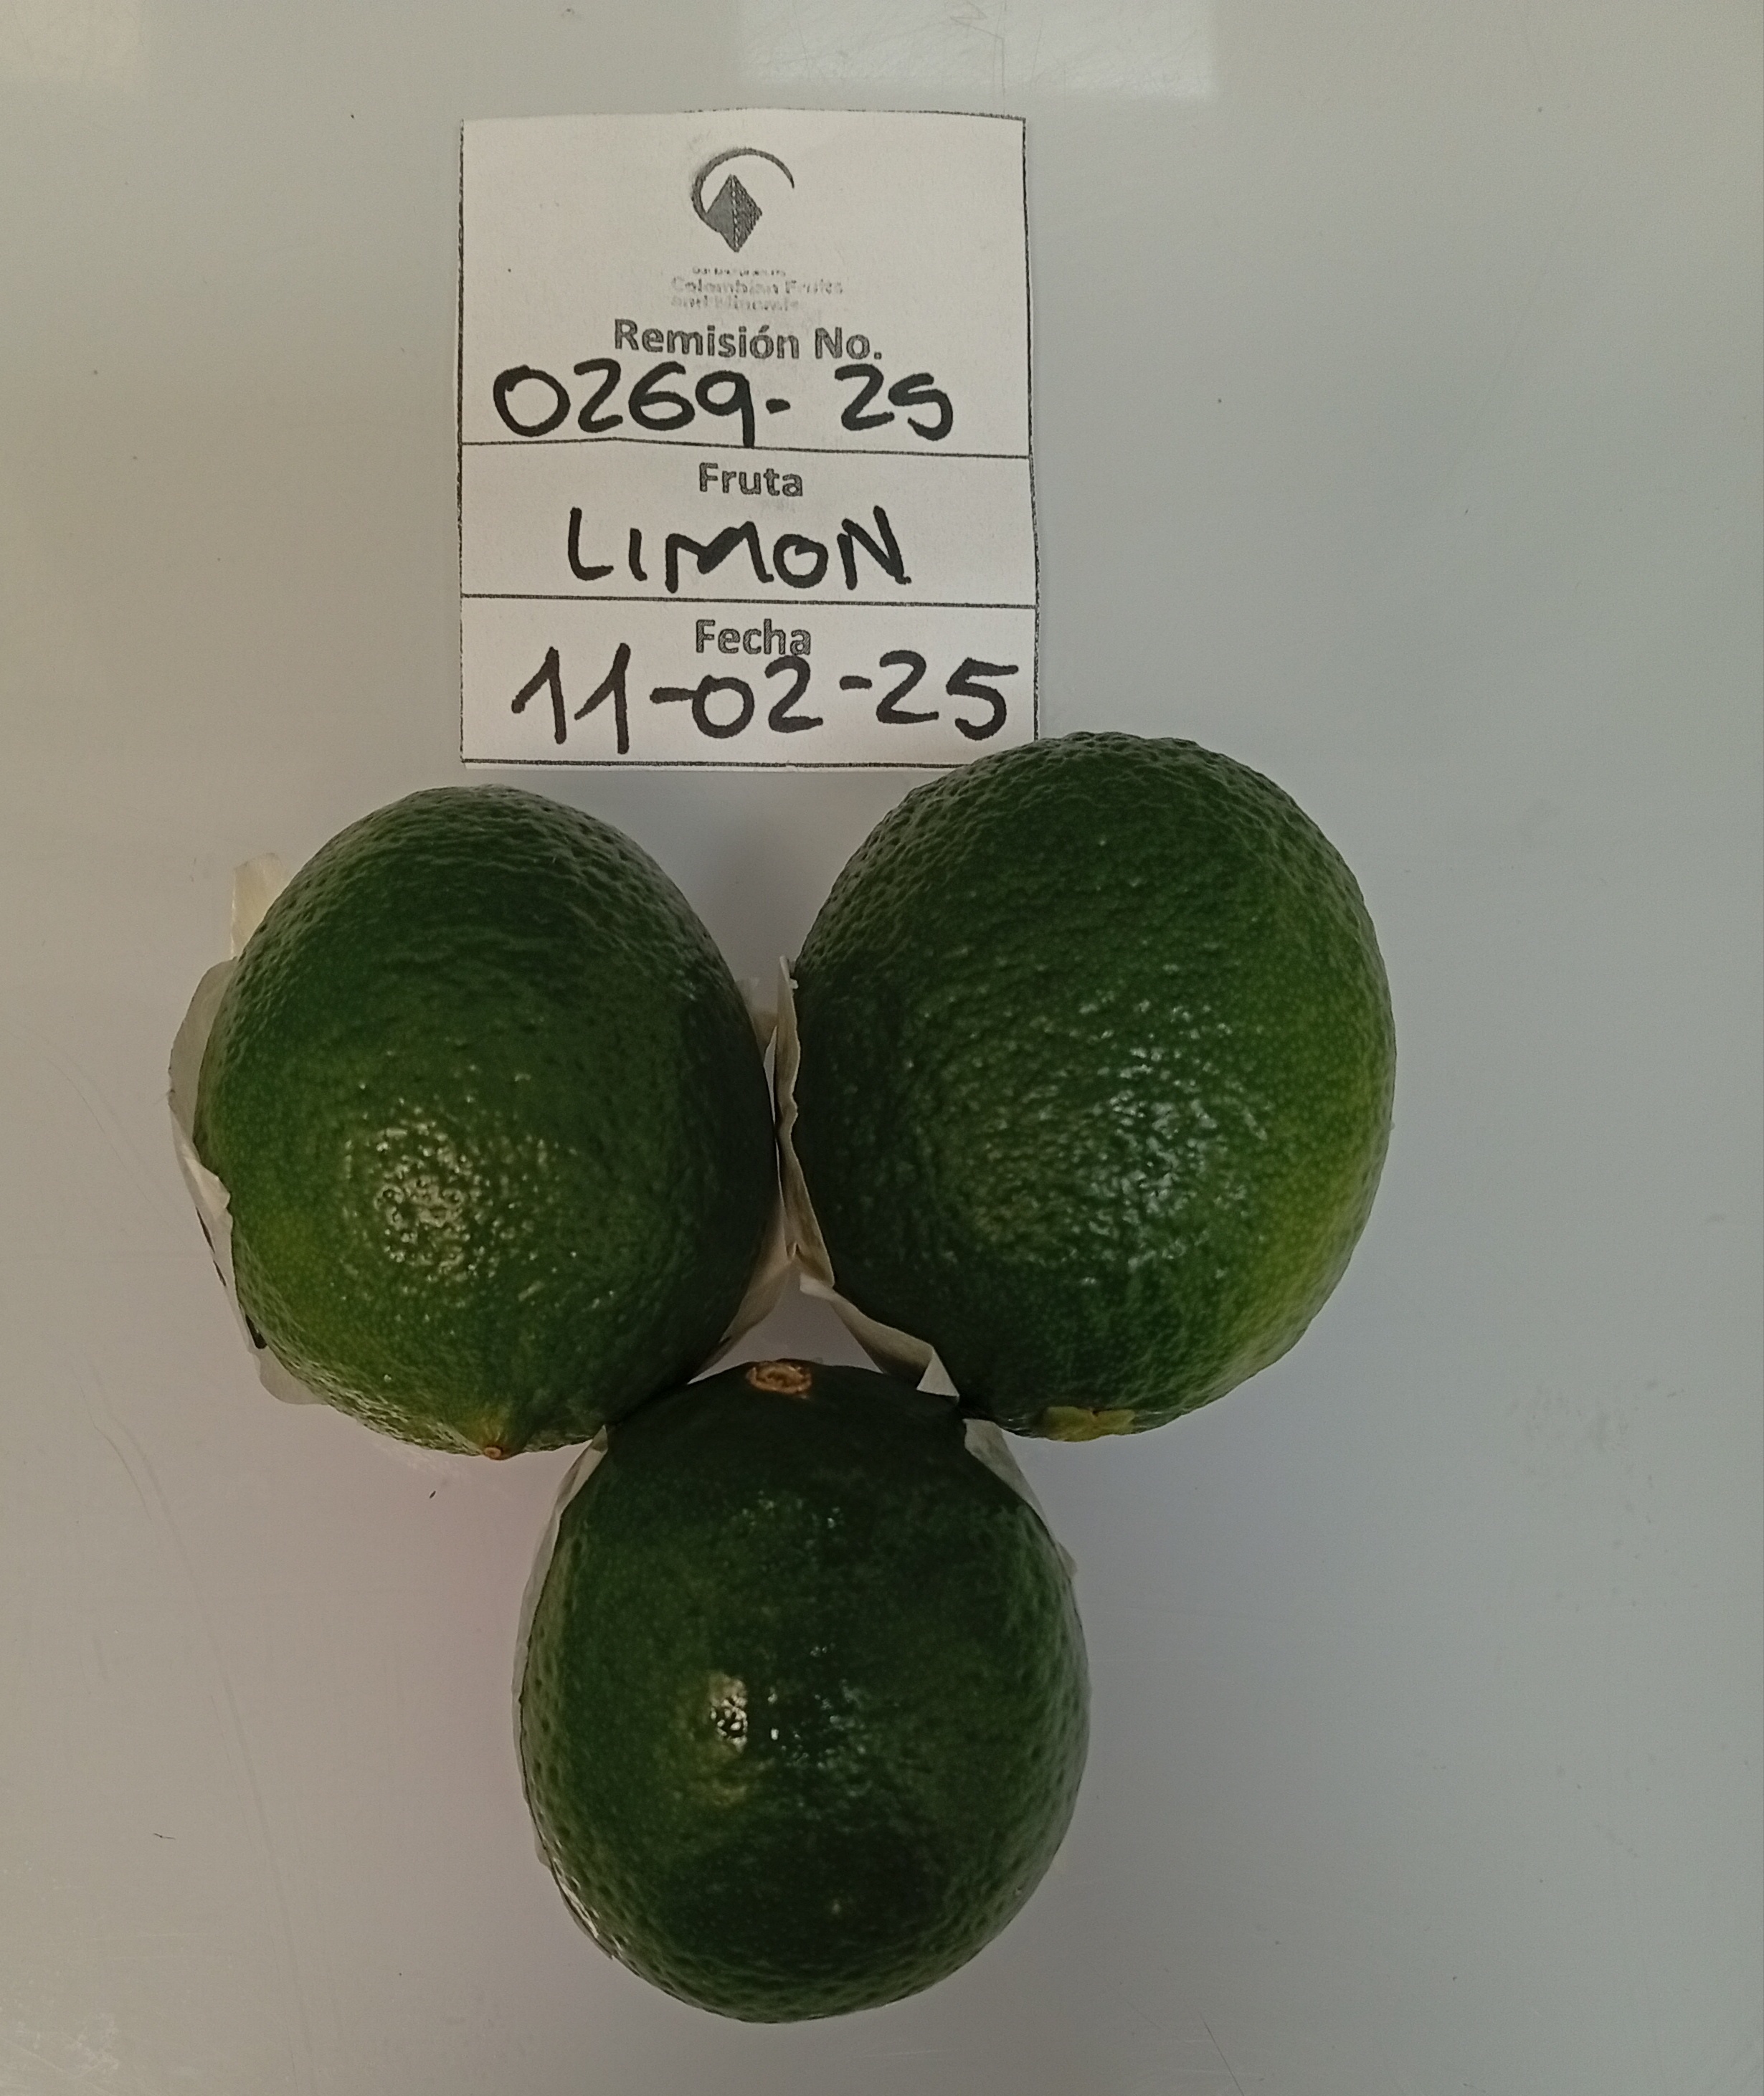 Colombian Fruits
and Minerals
Remisión No.
0269-25
Fruta
LIMON
Fecha
11-02-25